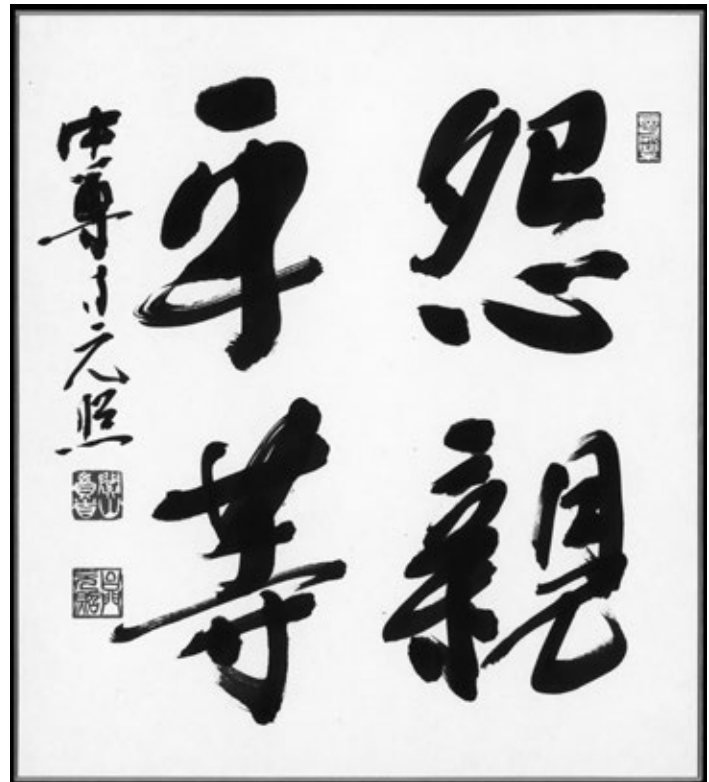 怨親
平等
中尊寺元照